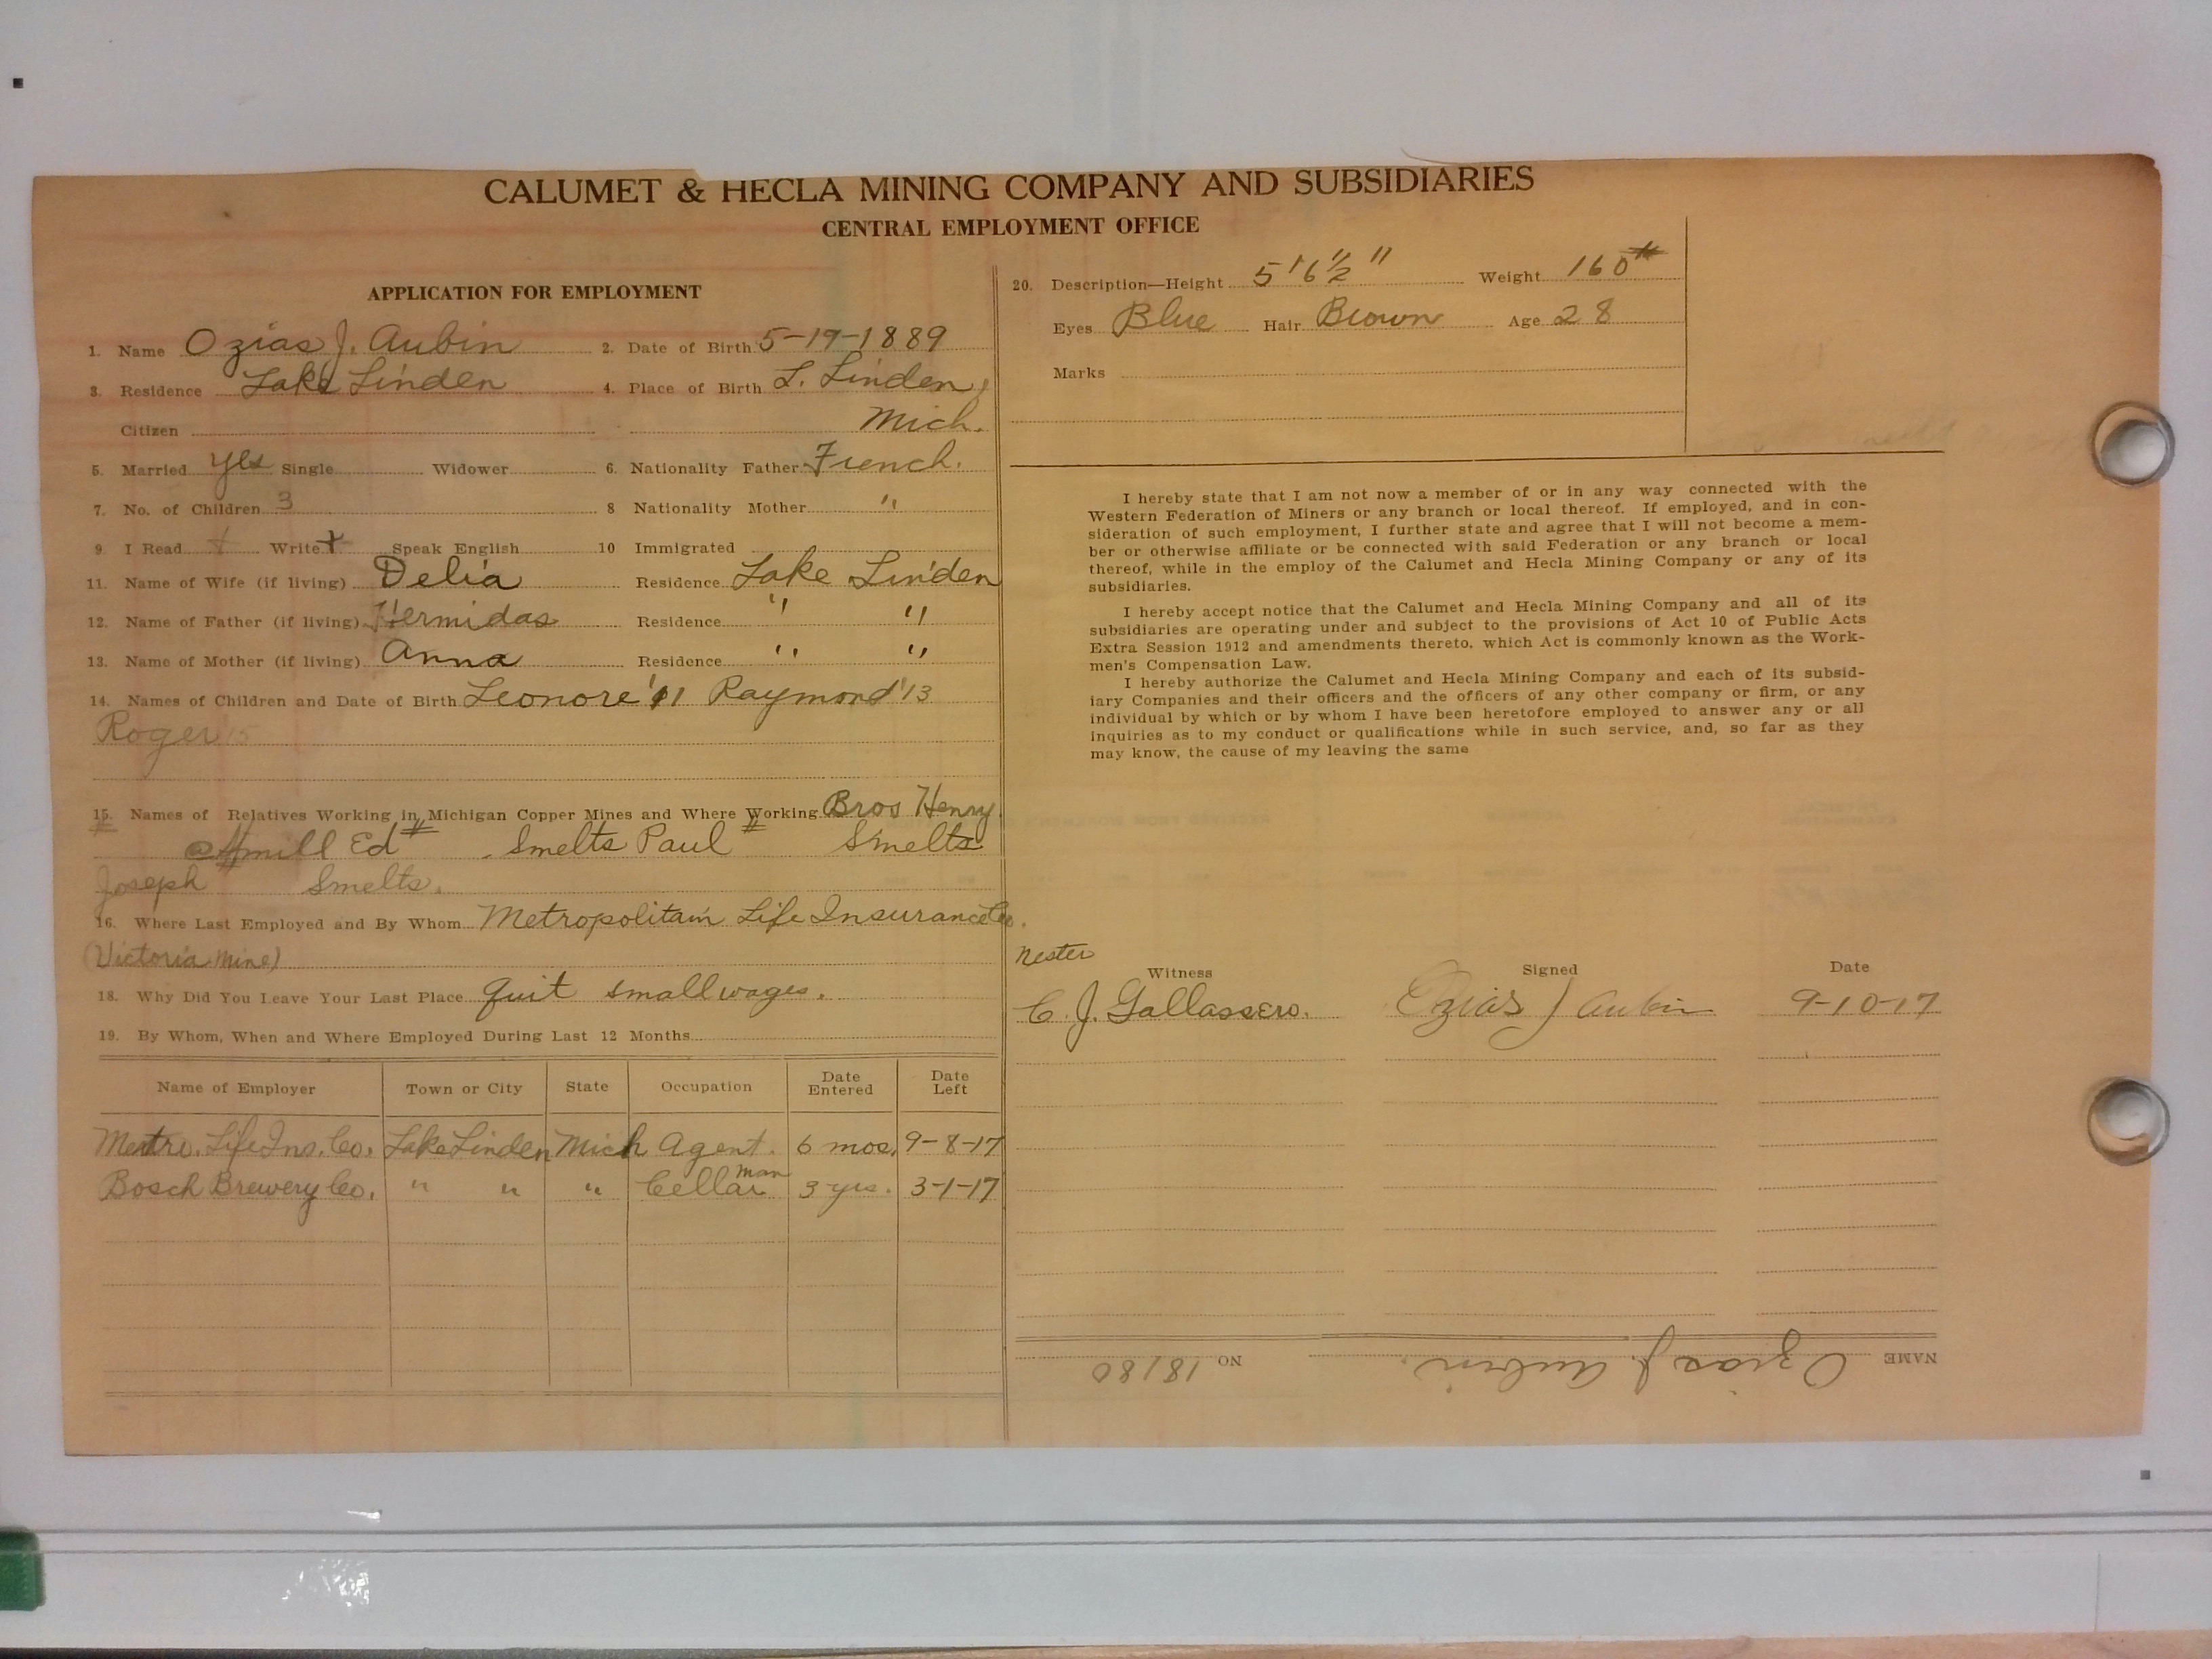 CALUMET & HECLA MINING COMPANY AND SUBSIDIARIES
CENTRAL EMPLOYMENT OFFICE
APPLICATION FOR EMPLOYMENT
1. Name Ozias J. Aubin 2. Date of Birth 5-19-1889
3. Residence Lake Linden 4. Place of Birth L. Linden,
Citizen Mich.
5. Married yes Single Widower 6. Nationality Father French.
7. No. of Children 3 8 Nationality Mother "
9. I Read + Write + Speak English 10 Immigrated
11. Name of Wife (if living) Delia Residence Lake Linden
12. Name of Father (if living) Hermidas Residence " "
13. Name of Mother (if living) Anna Residence " "
14. Names of Children and Date of Birth Leonore '11 Raymond '13
Roger '15
15. Names of Relatives Working in Michigan Copper Mines and Where Working Bros Henry
mill Ed # Smelts Paul # Smelts
Joseph Smelts.
16. Where Last Employed and By Whom Metropolitain Life Insurance Co.
(Victoria Mine)
18. Why Did You Leave Your Last Place quit small wages.
19. By Whom, When and Where Employed During Last 12 Months
Name of Employer Town or City State Occupation Date Entered Date Left
Metro. Life Ins. Co. Lake Linden Mich Agent. 6 mos. 9-8-17
Bosch Brewery Co. " " " Cellar man 3 yrs. 3-1-17
20. Description—Height 5' 6½" Weight 160 #
Eyes Blue Hair Brown Age 28
Marks
I hereby state that I am not now a member of or in any way connected with the
Western Federation of Miners or any branch or local thereof. If employed, and in con-
sideration of such employment, I further state and agree that I will not become a mem-
ber or otherwise affiliate or be connected with said Federation or any branch or local
thereof, while in the employ of the Calumet and Hecla Mining Company or any of its
subsidiaries.
I hereby accept notice that the Calumet and Hecla Mining Company and all of its
subsidiaries are operating under and subject to the provisions of Act 10 of Public Acts
Extra Session 1912 and amendments thereto, which Act is commonly known as the Work-
men's Compensation Law.
I hereby authorize the Calumet and Hecla Mining Company and each of its subsid-
iary Companies and their officers and the officers of any other company or firm, or any
individual by which or by whom I have been heretofore employed to answer any or all
inquiries as to my conduct or qualifications while in such service, and, so far as they
may know, the cause of my leaving the same
Nester
Witness Signed Date
C. J. Gallassero. Ozias J Aubin 9-10-17
NAME Ozias J. Aubin. NO 18180